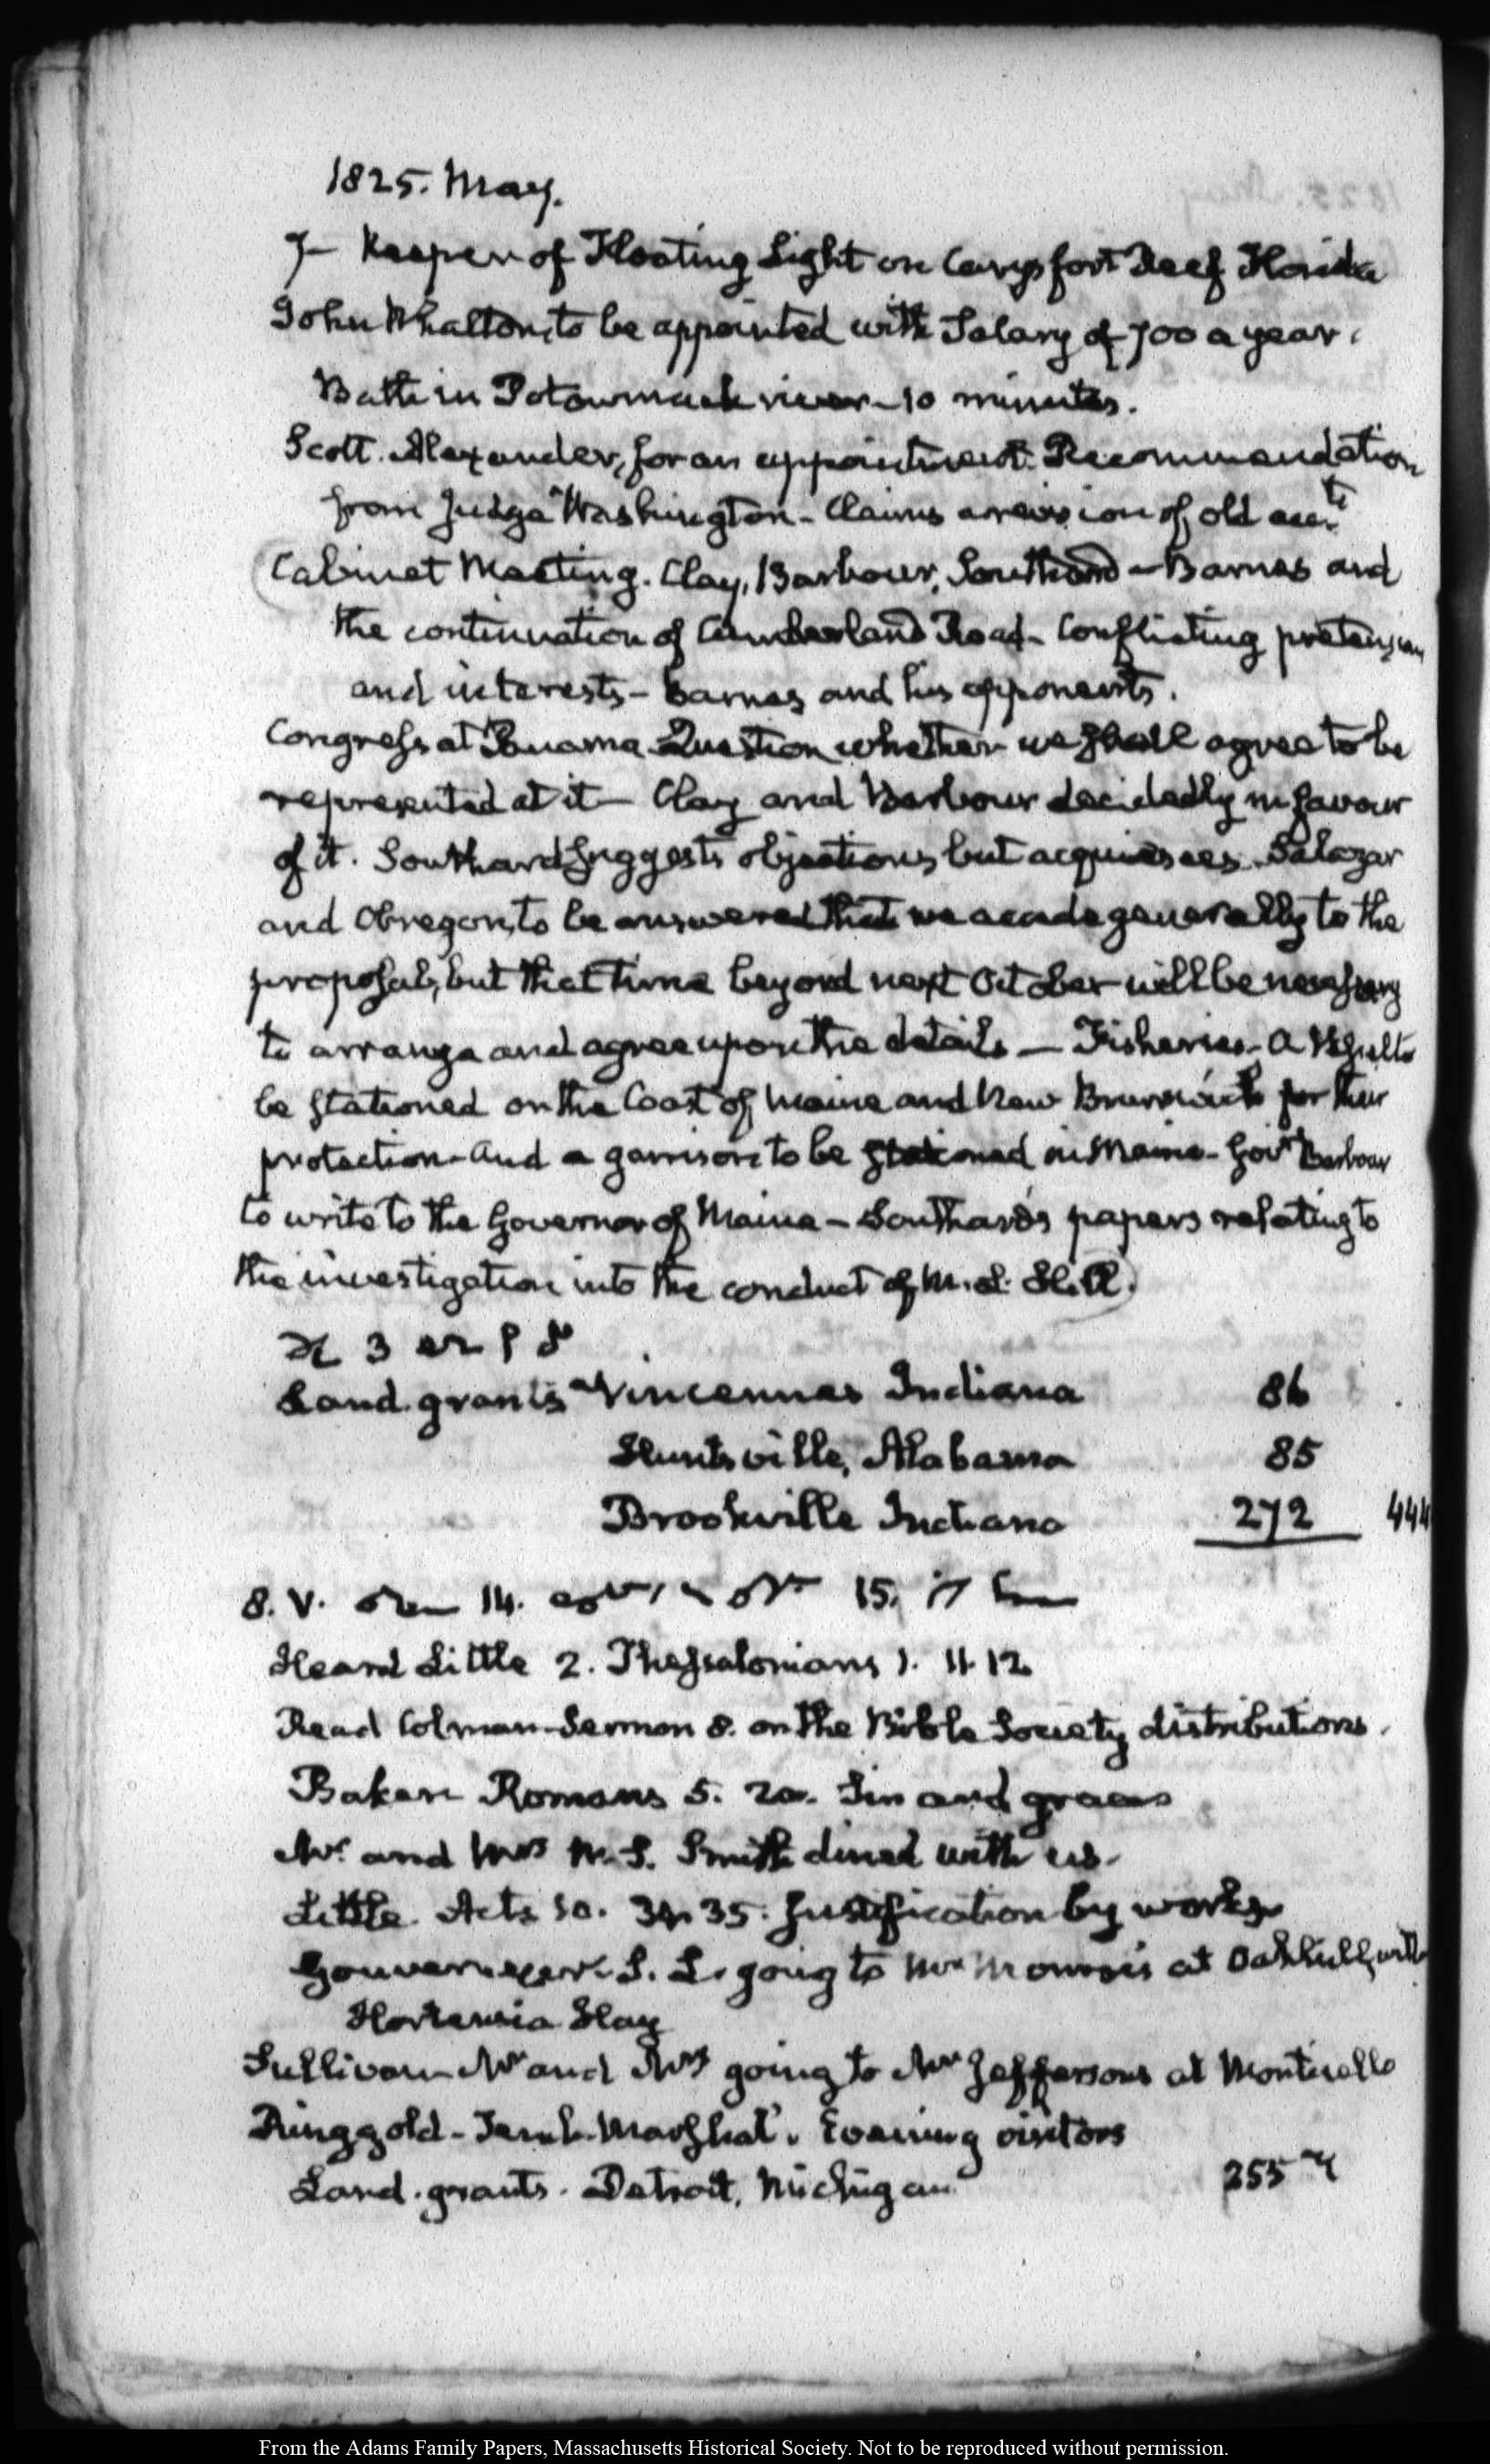 1825. May.
7— Keeper of Floating Light on Carysfort Reef Florida
John Whalton, to be appointed with Salary of 700 a year.
Bath in Potowmack river - 10 minutes.
Scott. Alexander, for an appointment. Recommendation
from Judge Washington - Claims a revision of old acc.ts
Cabinet Meeting. Clay, Barbour, Southard - Barnes and
the continuation of Cumberland Road - Conflicting pretension
and interests - Barnes and his opponents.
Congress at Panama. Question whether we shall agree to be
represented at it - Clay and Barbour decidedly in favour
of it. Southard suggests objections but acquiesces. Salazar
and Obregon, to be answered that we accede generally to the
proposal, but that time beyond next October will be necessary
to arrange and agree upon the details — Fisheries - a Vessel to
be stationed on the Coast of Maine and New Brunswick for their
protection - and a garrison to be stationed in Maine - Govr. Barbour
to write to the Governor of Maine - Southard's papers relating to
the investigation into the conduct of M. L.
3
Land grants - Vincennes Indiana 86
Huntsville, Alabama 85
Brookville Indiana 272 444
8. V. 14. 15.
Heard Little 2. Thessalonians 1. 11. 12
Read Colman Sermon 8. on the Bible Society distributions.
Baker Romans 5. 20. Sin and grace
Mr. and Mrs W. S. Smith dined with us.
Little. Acts 10. 34. 35. Justification by works
Gouverneur S. L. going to Mr Monroe's at Oakhill, with
Hortensia Hay
Sullivan Mr and Mrs going to Mr Jefferson's at Monticello
Ringgold - Tench. Marshal. Evening visitors
Land grants. Detroit, Michigan 255
From the Adams Family Papers, Massachusetts Historical Society. Not to be reproduced without permission.